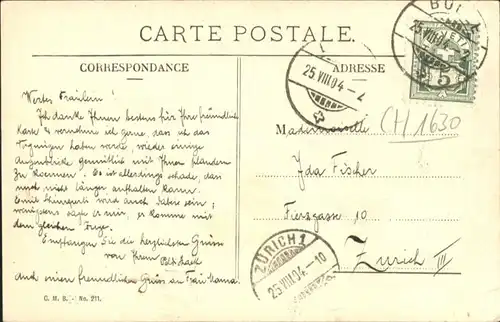 CARTE POSTALE.
CORRESPONDANCE
ADRESSE
25.VIII.04
5
25.VIII.04-4
Wertes Fräulein!
Ich danke Ihnen bestens für Ihre freundliche
Karte & vernehme ich gerne, dass ich das
Vergnügen haben werde, wieder einige
Augenblicke gemütlich mit Ihnen plaudern
zu können. Es ist allerdings schade, dass
mich nicht länger aufhalten kann.
Emil wird auch dabei sein;
wenigstens sagte er mir, er komme mit
dem gleichen Zuge.
Empfangen Sie die herzlichsten Grüsse
von Ihrem
und einen freundlichen Gruss an Frau Mama.
Mademoiselle
(H 1630
Ida Fischer
10
Zürich III
ZÜRICH 1
25.VIII.04.-10
C. M. B. - No. 211.